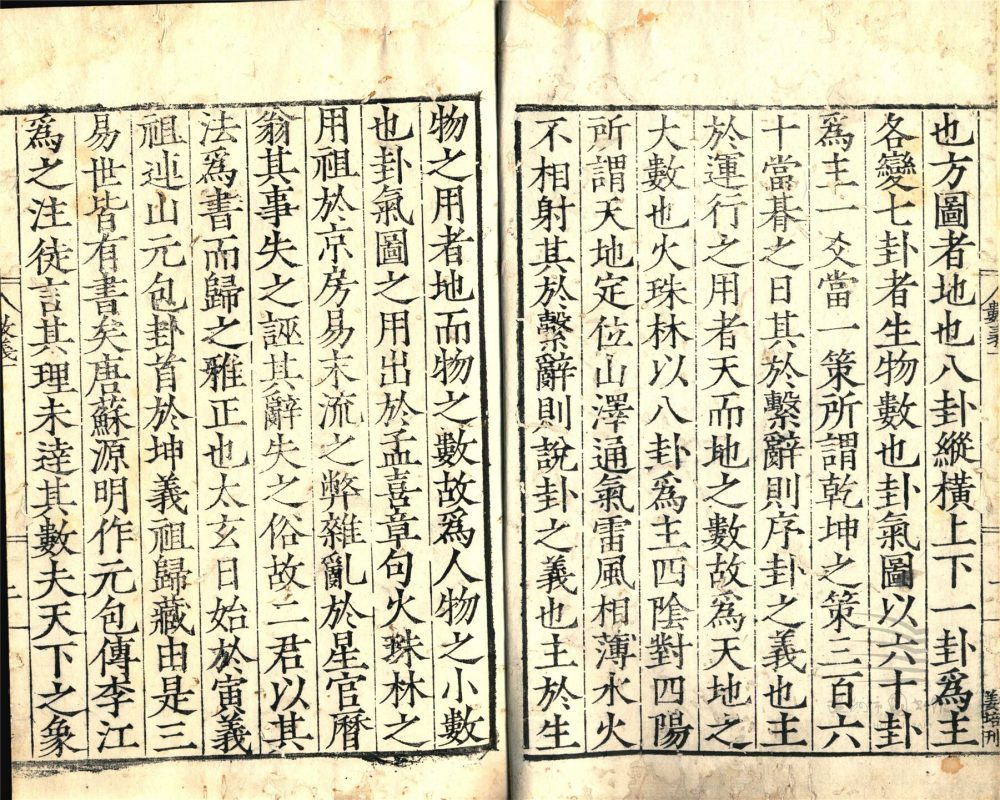 也方圖者地也八卦縱橫上下一卦爲主
各變七卦者生物數也卦氣圖以六十卦
爲主一爻當一策所謂乾坤之策三百六
十當朞之日其於繫辭則序卦之義也主
於運行之用者天而地之數故爲天地之
大數也火珠林以八卦爲主四陰對四陽
所謂天地定位山澤通氣雷風相薄水火
不相射其於繫辭則說卦之義也主於生
物之用者地而物之數故爲人物之小數
也卦氣圖之用出於孟喜章句火珠林之
用祖於京房易末流之弊雜亂於星官曆
翁其事失之誣其辭失之俗故二君以其
法爲書而歸之雅正也太玄日始於寅義
祖連山元包卦首於坤義祖歸藏由是三
易世皆有書矣唐蘇源明作元包傳李江
爲之注徒言其理未達其數夫天下之象